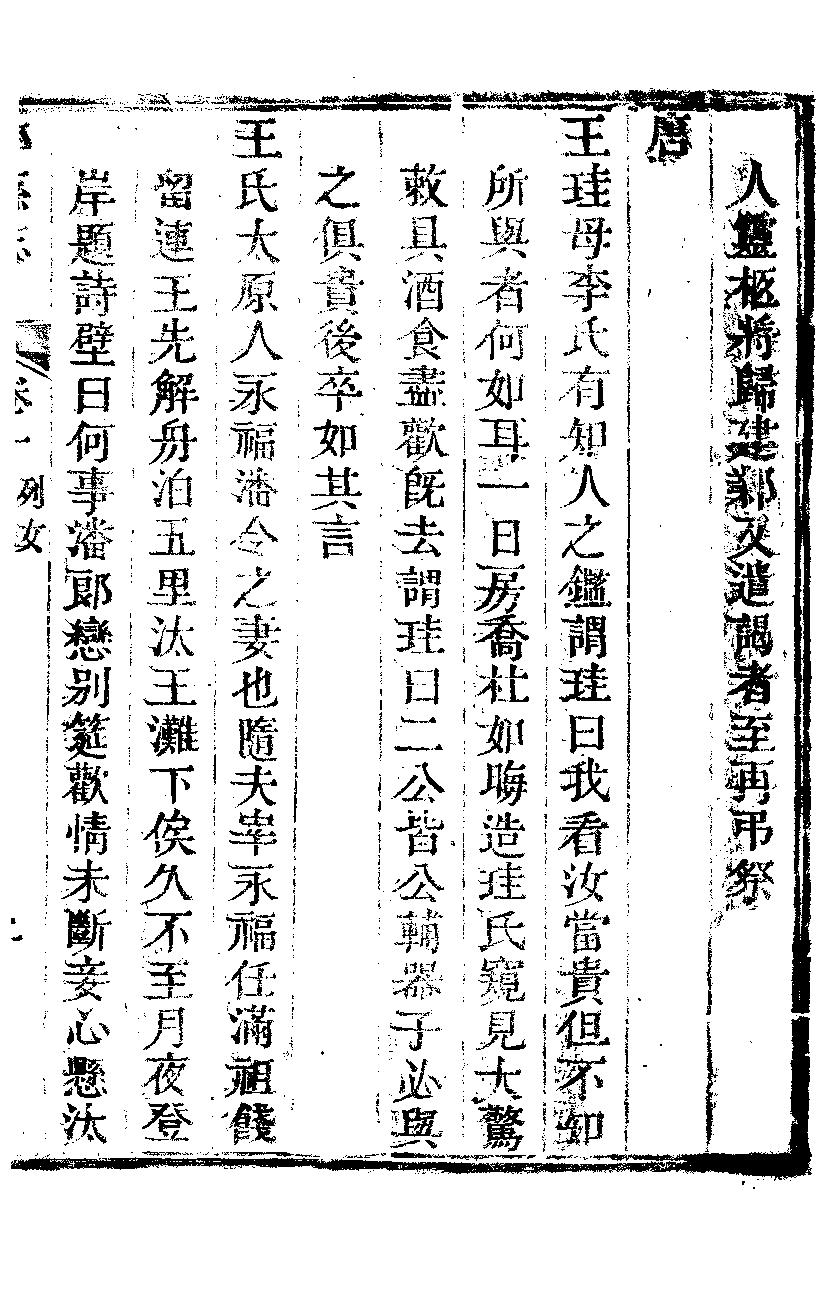 人靈柩將歸建鄴又遣謁者至再弔祭
唐
王珪母李氏有知人之鑑謂珪曰我看汝當貴但不知
所與者何如耳一日房喬杜如晦造珪氏窺見大驚
敕具酒食盡歡旣去謂珪曰二公皆公輔器子必與
之俱貴後卒如其言
王氏太原人永福潘令之妻也隨夫宰永福任滿祖餞
留連王先解舟泊五里汰王灘下俟久不至月夜登
岸題詩壁曰何事潘郎戀别筵歡情未斷妾心懸汰
卷一 列女